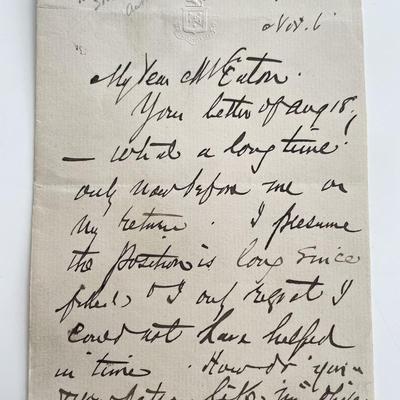 Nov. 6
My Dear Mr Eaton.
Your letter of Aug 18,
— what a long time!
only now before me on
my return. I presume
the position is long since
filled & I only regret I
could not have helped
in time. How do you
like